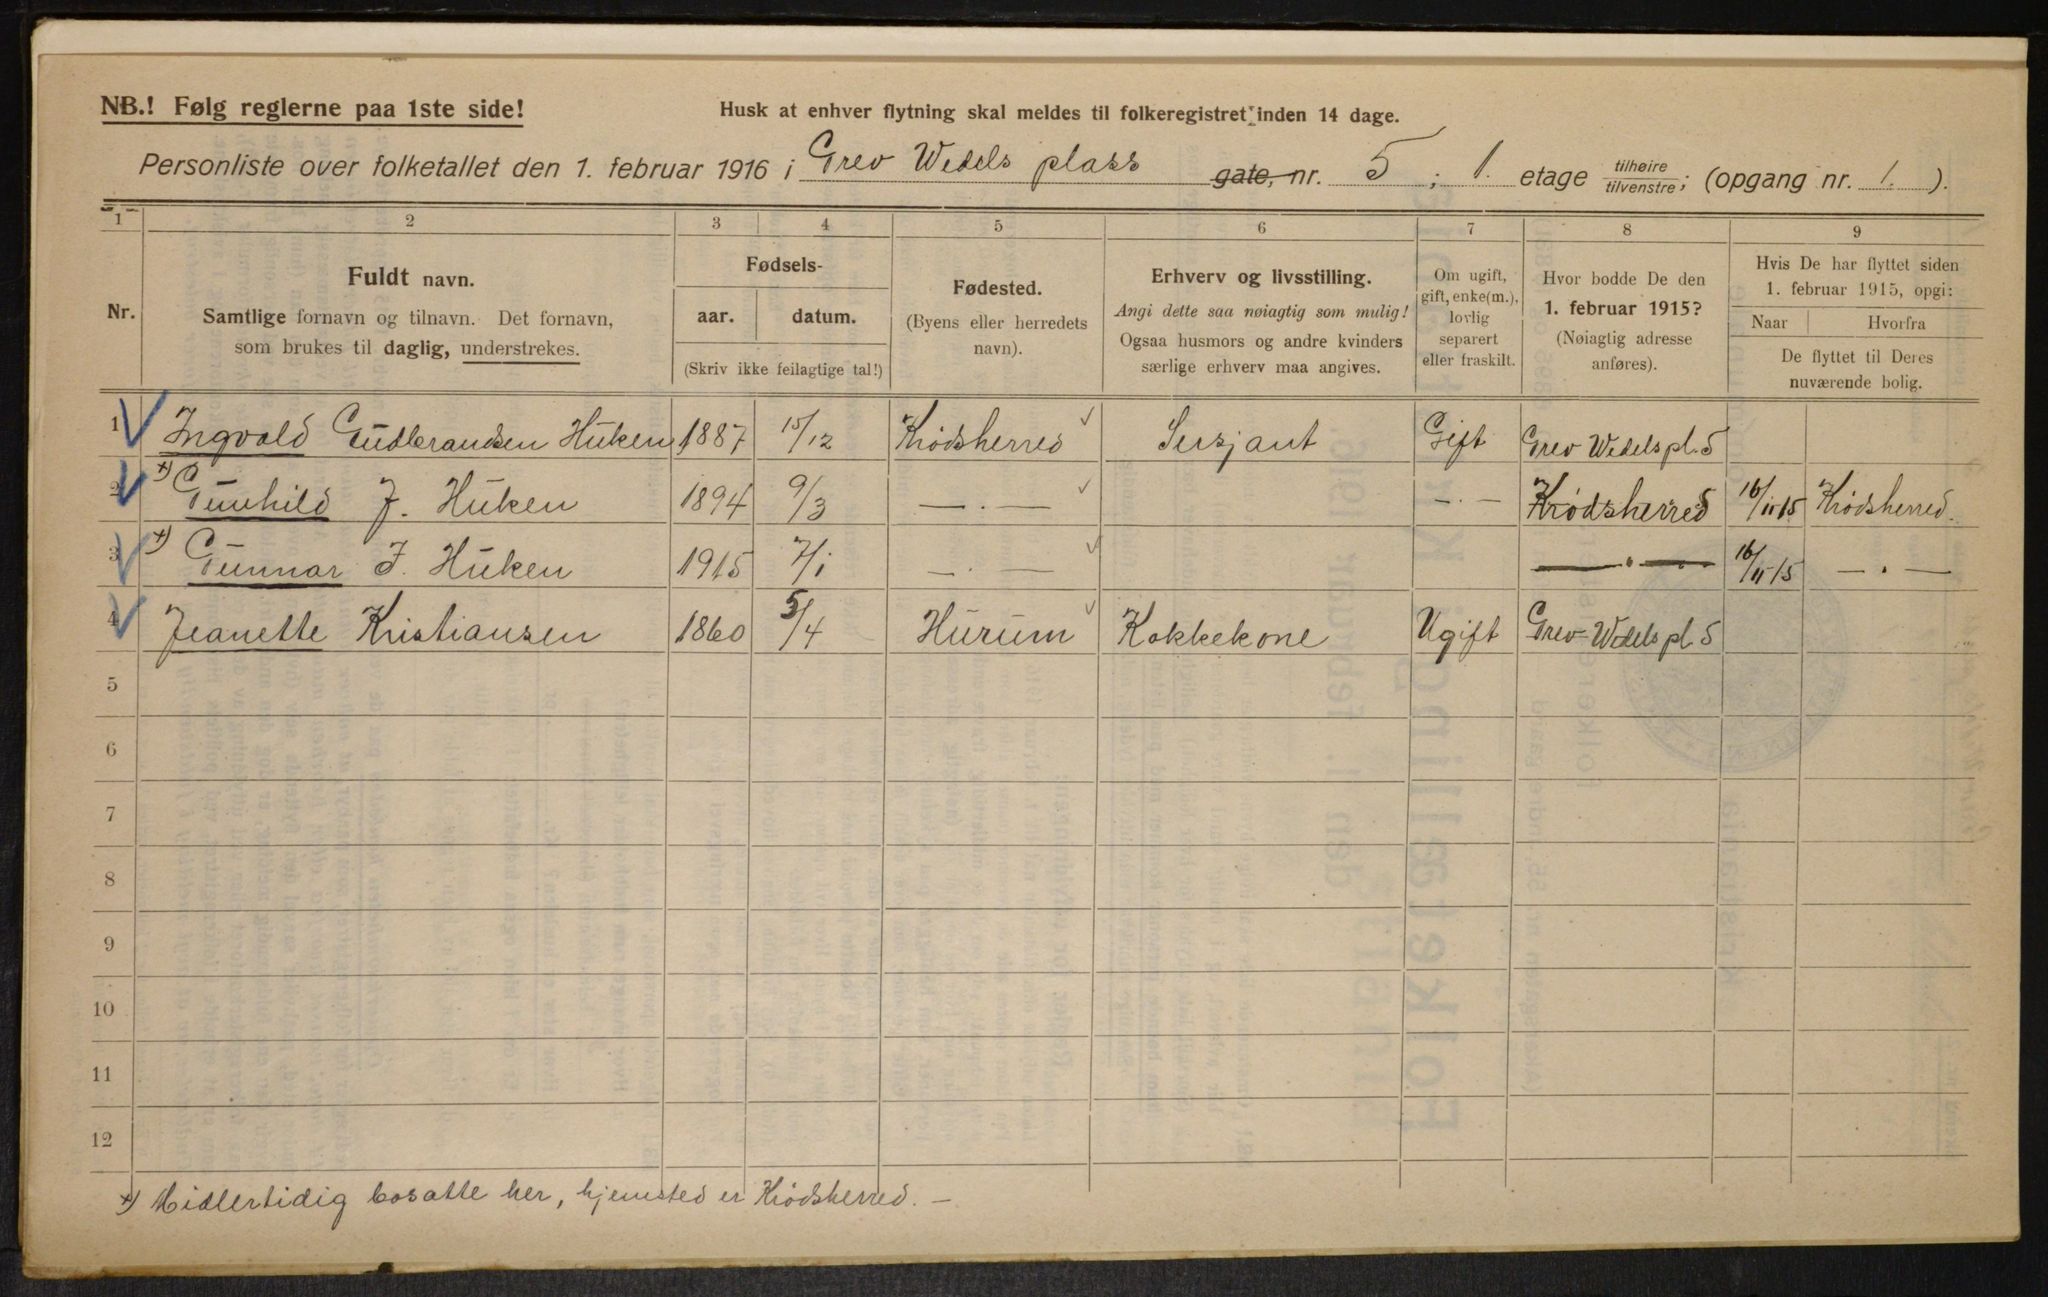 NB.! Følg reglerne paa 1ste side!
Husk at enhver flytning skal meldes til folkeregistret inden 14 dage.
Personliste over folketallet den 1. februar 1916 i Grev Wedels plass gate, nr. 5 ; 1. etage tilhøire tilvenstre; (opgang nr. 1. ).
1 2 3 4 5 6 7 8 9
Nr.
Fuldt navn.
Samtlige fornavn og tilnavn. Det fornavn,
som brukes til daglig, understrekes.
Fødsels-
aar. datum.
(Skriv ikke feilagtige tal!)
Fødested.
(Byens eller herredets
navn).
Erhverv og livsstilling.
Angi dette saa nøiagtig som mulig!
Ogsaa husmors og andre kvinders
særlige erhverv maa angives.
Om ugift,
gift, enke(m.),
lovlig
separert
eller fraskilt.
Hvor bodde De den
1. februar 1915?
(Nøiagtig adresse
anføres).
Hvis De har flyttet siden
1. februar 1915, opgi:
Naar Hvorfra
De flyttet til Deres
nuværende bolig.
1 Ingvald Gudbrandsen Huken 1887 15/12 Krødsherred Sersjant Gift Grev Wedels pl. 5
2 +) Gunhild J. Huken 1894 9/3 — . — — . — Krødsherred 16/11 15 Krødsherred.
3 +) Gunnar I. Huken 1915 7/1 — . — — . — 16/11 15 — . —
4 Jeanette Kristiansen 1860 5/4 Hurum Kokkekone Ugift Grev Wedels pl. 5
5
6
7
8
9
10
11
12
+) Midlertidig bosatte her, hjemsted er Krødsherred. —